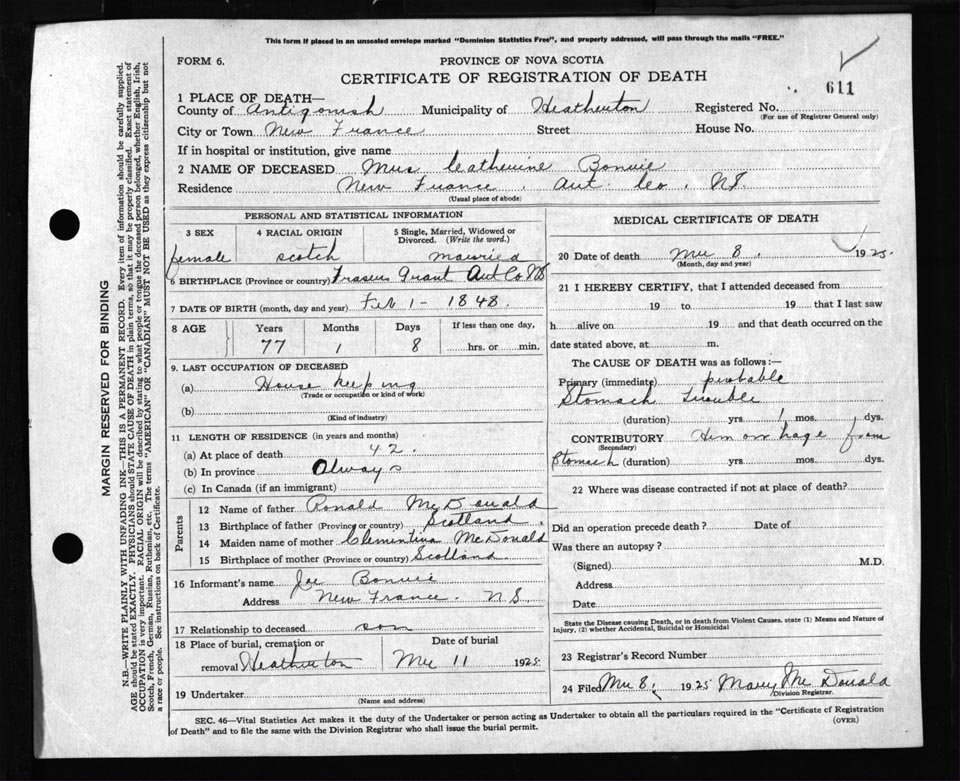 This form if placed in an unsealed envelope marked "Dominion Statistics Free", and properly addressed, will pass through the mails "FREE."
FORM 6.
PROVINCE OF NOVA SCOTIA
CERTIFICATE OF REGISTRATION OF DEATH
611
1 PLACE OF DEATH—
County of Antigonish Municipality of Heatherton Registered No.
(For use of Registrar General only)
City or Town New France Street House No.
If in hospital or institution, give name
2 NAME OF DECEASED Mrs Catherine Bonvie
Residence New France. Ant. Co. NS
(Usual place of abode)
PERSONAL AND STATISTICAL INFORMATION
3 SEX 4 RACIAL ORIGIN 5 Single, Married, Widowed or Divorced. (Write the word.)
female scotch married
6 BIRTHPLACE (Province or country) Frasers Grant Ant Co NS
7 DATE OF BIRTH (month, day and year) Feb 1 - 1848.
8 AGE Years Months Days If less than one day,
77 1 8 hrs. or min.
9. LAST OCCUPATION OF DECEASED
(a) House keeping
(Trade or occupation or kind of work)
(b)
(Kind of industry)
11 LENGTH OF RESIDENCE (in years and months)
(a) At place of death 42.
(b) In province Always
(c) In Canada (if an immigrant)
Parents
12 Name of father Ronald McDonald
13 Birthplace of father (Province or country) Scotland.
14 Maiden name of mother Clementina McDonald
15 Birthplace of mother (Province or country) Scotland
16 Informant's name Joe Bonvie
Address New France. N.S.
17 Relationship to deceased son
18 Place of burial, cremation or removal Heatherton
Date of burial
Mch 11 1925
19 Undertaker
(Name and address)
MEDICAL CERTIFICATE OF DEATH
20 Date of death Mch 8, 1925.
(Month, day and year)
21 I HEREBY CERTIFY, that I attended deceased from
19 to 19 that I last saw
h alive on 19 and that death occurred on the
date stated above, at m.
The CAUSE OF DEATH was as follows:—
Primary (immediate) probable
Stomach Trouble
(duration) yrs. 1 mos. dys.
CONTRIBUTORY Hemorrhage from
(Secondary)
Stomach (duration) yrs. mos. dys.
22 Where was disease contracted if not at place of death?
Did an operation precede death? Date of
Was there an autopsy?
(Signed) M.D.
Address
Date
State the Disease causing Death, or in death from Violent Causes, state (1) Means and Nature of
Injury, (2) whether Accidental, Suicidal or Homicidal
23 Registrar's Record Number
24 Filed Mch 8, 1925 Mary McDonald
Division Registrar.
SEC. 46—Vital Statistics Act makes it the duty of the Undertaker or person acting as Undertaker to obtain all the particulars required in the "Certificate of Registration
of Death" and to file the same with the Division Registrar who shall issue the burial permit.
(OVER)
MARGIN RESERVED FOR BINDING
N.B.—WRITE PLAINLY WITH UNFADING INK—THIS IS A PERMANENT RECORD. Every item of information should be carefully supplied.
AGE should be stated EXACTLY. PHYSICIANS should STATE CAUSE OF DEATH in plain terms, so that it may be properly classified. Exact statement of
OCCUPATION is very important. RACIAL ORIGIN will be described by stating to what people or tongue the deceased person belonged, whether English, Irish,
Scotch, French, German, Russian, Ruthenian, etc. The terms "AMERICAN" OR "CANADIAN" MUST NOT BE USED as they express citizenship but not
a race or people. See instructions on back of Certificate.